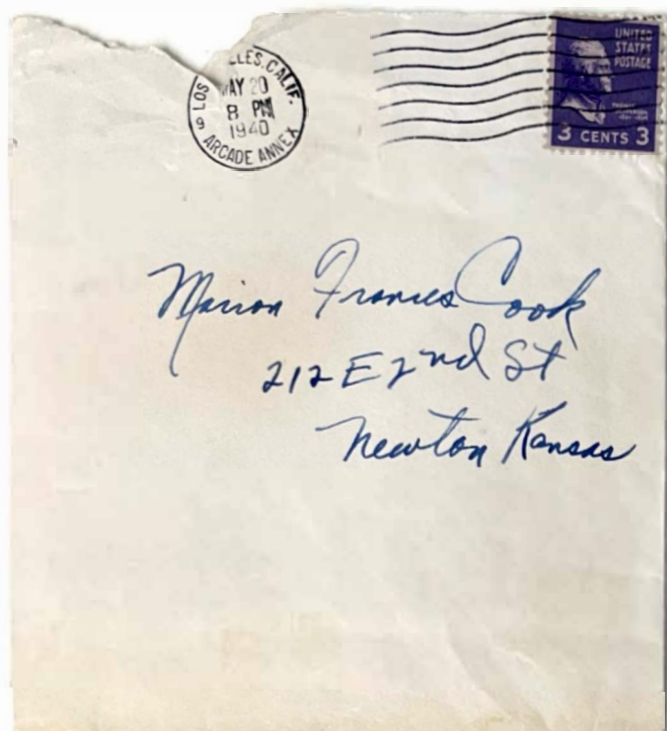 LOS ANGELES, CALIF.
MAY 20
8 PM
1940
9 ARCADE ANNEX
UNITED
STATES
POSTAGE
THOMAS
JEFFERSON
3 CENTS 3
Marion Frances Cook
212 E 2nd St
Newton Kansas